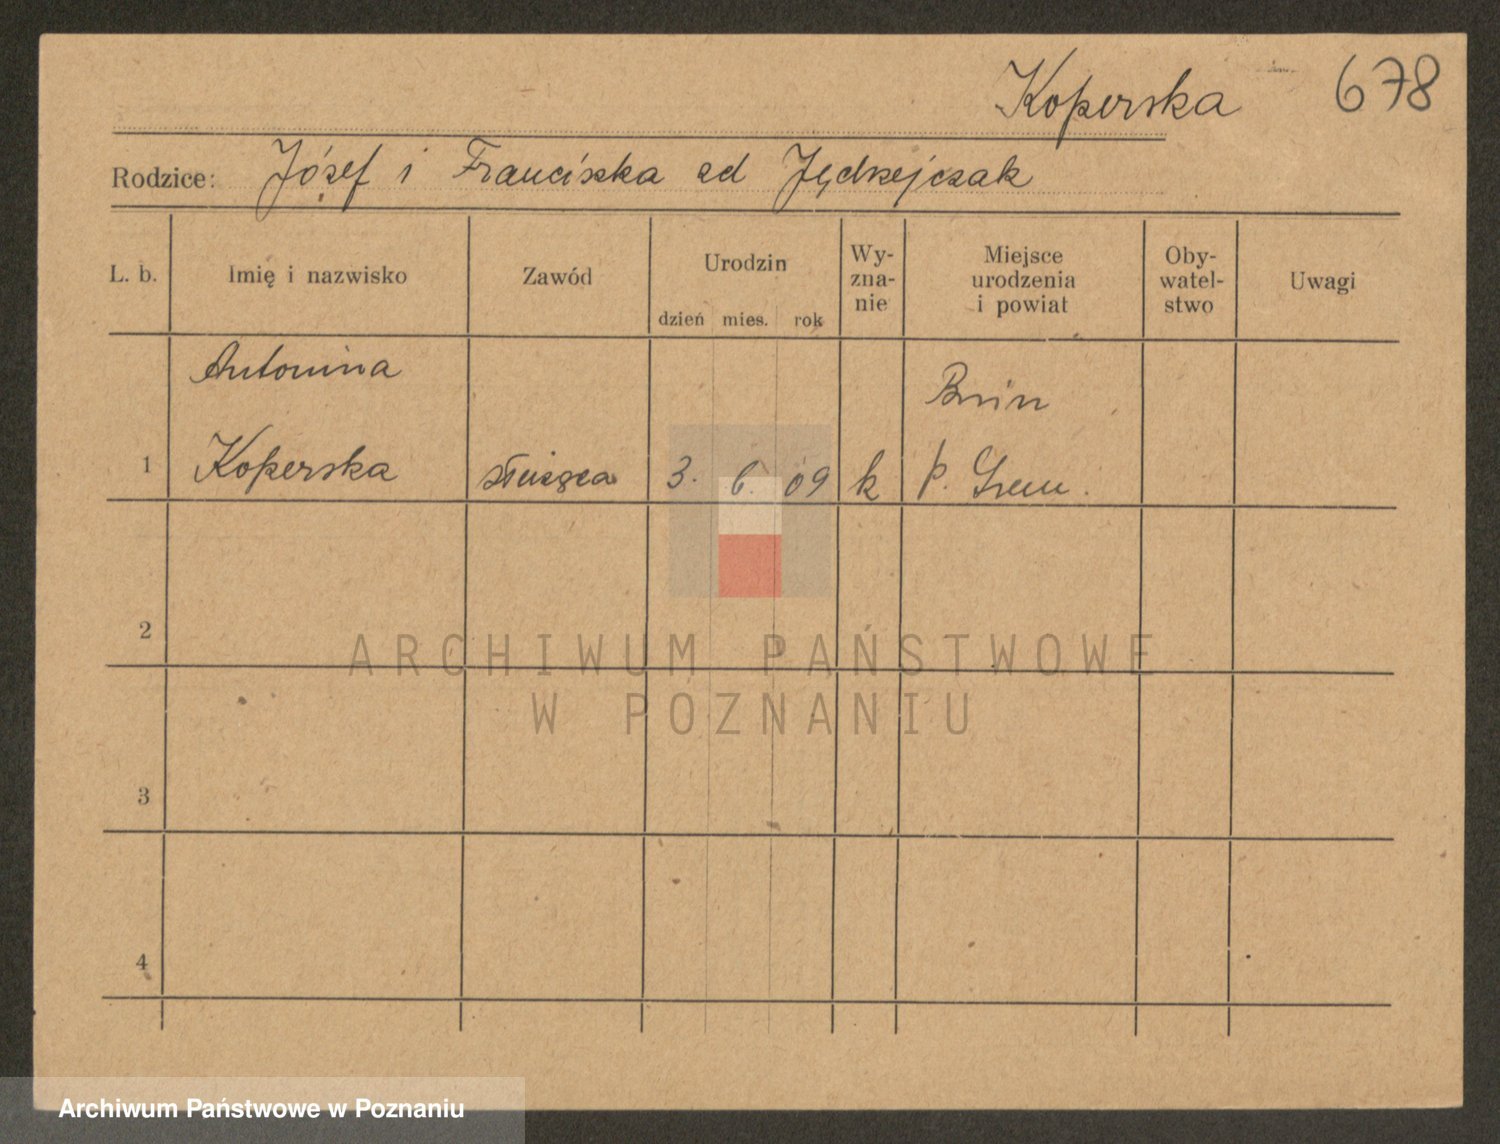 Koperska 678
Rodzice: Józef i Franciszka zd Jędrzejczak
L. b. Imię i nazwisko Zawód Urodzin dzień mies. rok Wy-
zna-
nie Miejsce
urodzenia
i powiat Oby-
watel-
stwo Uwagi
Antonina Bnin
1 Koperska służąca 3. 6. 09 k p. Śrem.
2
ARCHIWUM PAŃSTWOWE
W POZNANIU
3
4
Archiwum Państwowe w Poznaniu